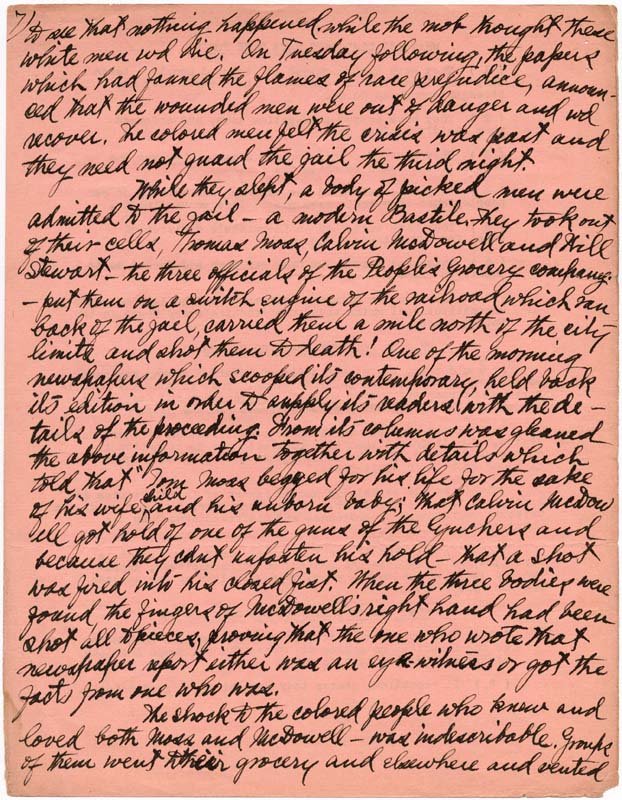 7/
to see that nothing happened while the mob thought these
white men wd die. On Tuesday following, the papers
which had fanned the flames of race prejudice, announ-
ced that the wounded men were out of danger and wd
recover. The colored men felt the crisis was past and
they need not guard the jail the third night.
While they slept, a body of picked men were
admitted to the jail - a modern Bastile. They took out
of their cells, Thomas Moss, Calvin McDowell and Will
Stewart - the three officials of the People's Grocery company
- put them on a switch engine of the railroad which ran
back of the jail, carried them a mile north of the city
limits and shot them to death! One of the morning
newspapers which scooped its contemporary, held back
its edition in order to supply its readers with the de-
tails of the proceeding. From its columns was gleaned
the above information together with details which
told that "Tom Moss begged for his life for the sake
of his wife, child and his unborn baby; that Calvin McDow
ell got hold of one of the guns of the lynchers and
because they cdnt unfasten his hold - that a shot
was fired into his closed fist. When the three bodies were
found the fingers of McDowell's right hand had been
shot all to pieces, proving that the one who wrote that
newspaper report either was an eye-witness or got the
facts from one who was.
The shock to the colored people who knew and
loved both Moss and McDowell - was indescribable. Groups
of them went to their grocery and elsewhere and vented